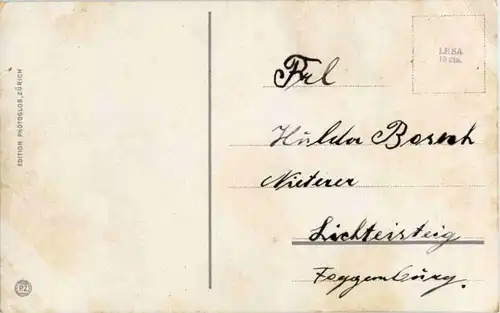 EDITION PHOTOGLOB, ZÜRICH
PZ
LESA
15 cts.
Frl
Hulda Bösch
Nieterer
Lichtensteig
Toggenburg.